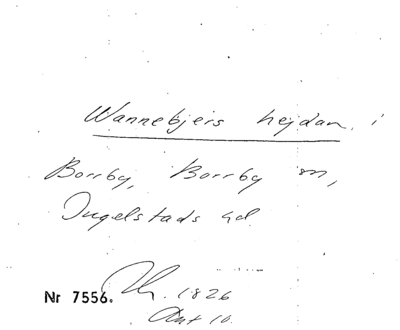 Wannebjers hejdan i
Borrby, Borrby sn,
Ingelstads hd.
Nr 7556. 1826
10.